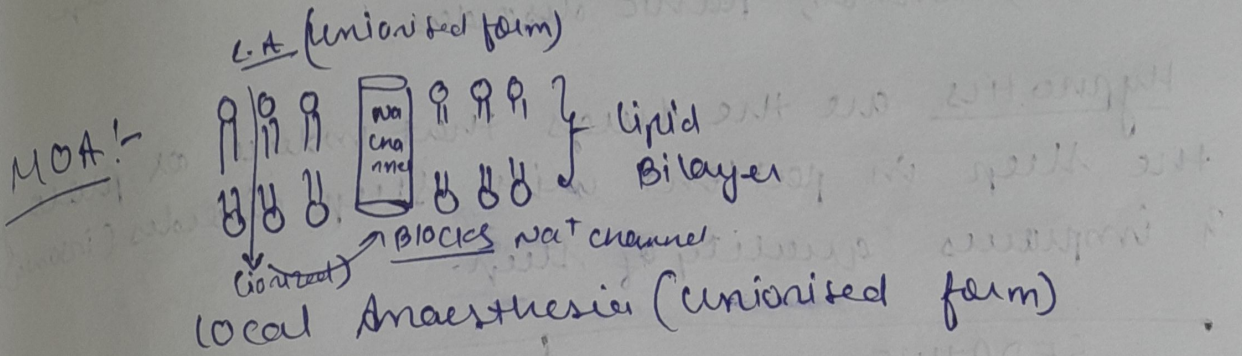 L.A (Unionised form)
MOA:-
Na
cha
nnel
Lipid
Bilayer
(ionized)
BLOCKS Na+ channel
Local Anaesthesia (Unionised form)